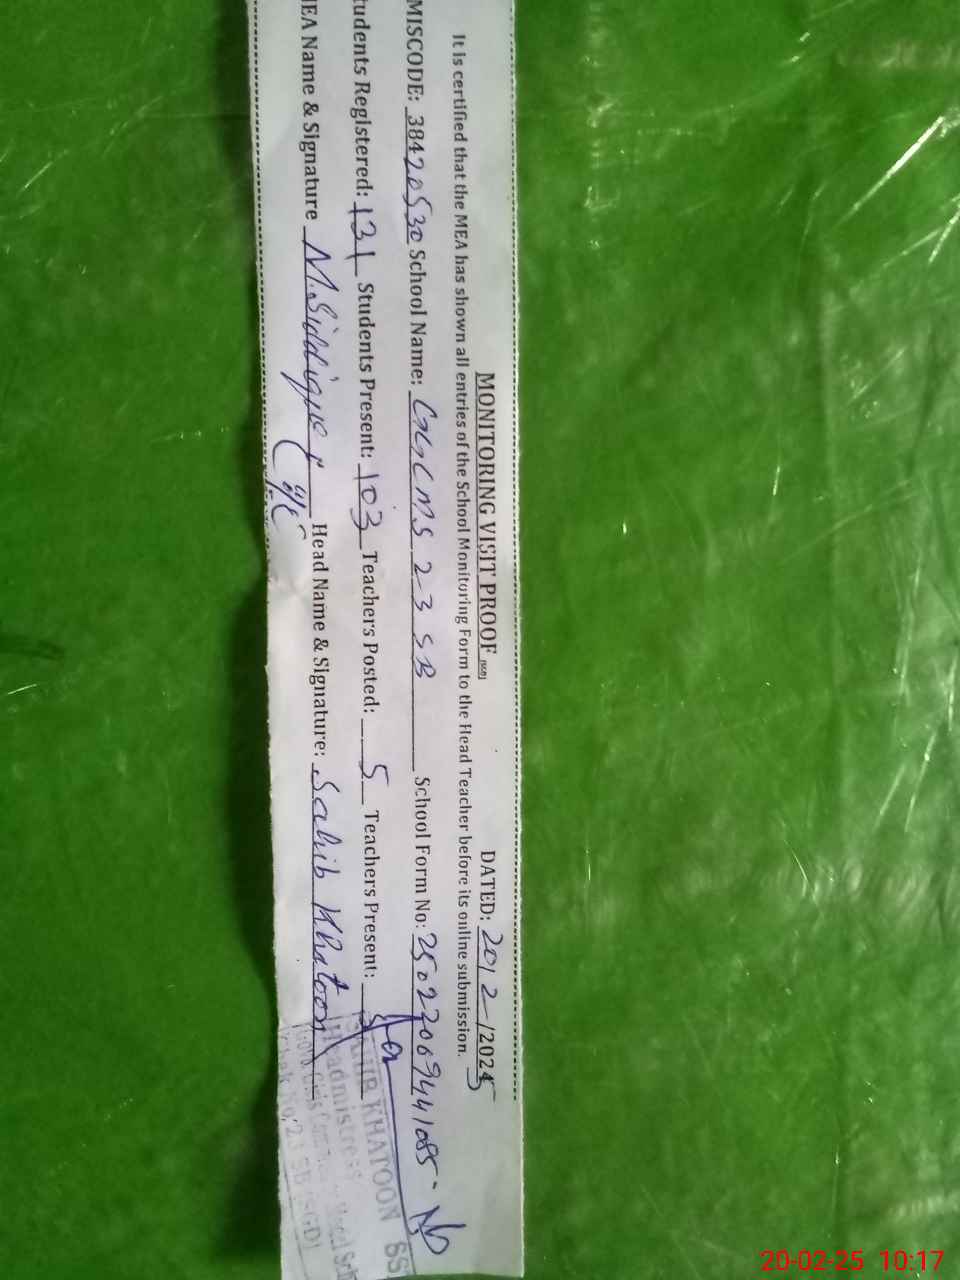 MONITORING VISIT PROOF DATED: 20/2/2025
It is certified that the MEA has shown all entries of the School Monitoring Form to the Head Teacher before its online submission.
MISCODE: 38420530 School Name: GGCMS 23 SB School Form No: 25022069441085-
tudents Registered: 131 Students Present: 103 Teachers Posted: 5 Teachers Present:
EA Name & Signature M. Siddique Head Name & Signature: Sahib Khatoon
SAHIB KHATOON SS
Headmistress
Govt. Girls Model Sch
Chak No. 23 SB (SGD)
20-02-25 10:17